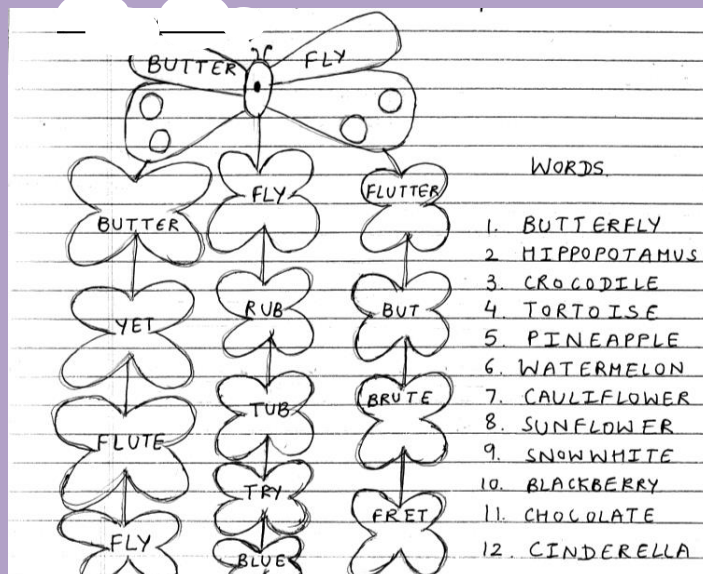 BUTTER FLY
BUTTER
YET
FLUTE
FLY
FLY
RUB
TUB
TRY
BLUE
FLUTTER
BUT
BRUTE
FRET
WORDS
1. BUTTERFLY
2 HIPPOPOTAMUS
3. CROCODILE
4. TORTOISE
5. PINEAPPLE
6. WATERMELON
7. CAULIFLOWER
8. SUNFLOWER
9. SNOWWHITE
10. BLACKBERRY
11. CHOCOLATE
12. CINDERELLA